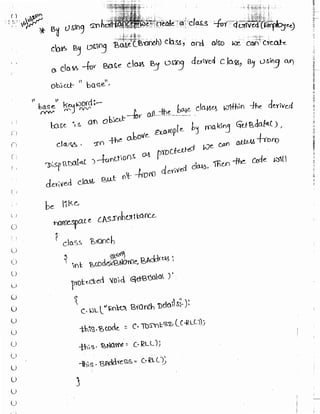 * By Using create a class for derived (Employee)
class By using Base (Branch) class, and also we can create
a class for Base class By using derived class, By using an
object "base".
"base" keyword:-
base is an object for all the base classes within the derived
class. In the above example by making GetBdata(),
DispBdata() functions as protected we can access from
derived class But n't from derived class. Then the code will
be like
namespace CASInheritance
{
class Branch
{
int Bcode; string BName, BAddress;
protected void GetBData()
{
C.WL("Enter Branch Details:");
this.Bcode = C.ToInt32(C.RL());
this.BName = C.RL();
this.BAddress = C.RL();
}